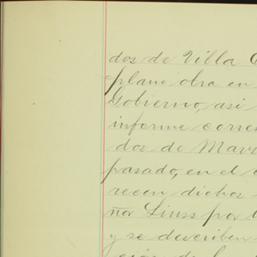 dos de Villa
plano obra en
Gobierno, así
informe corres
dos de Mar
pasado, en el
recen dichos
ñor Liuss por
y se describen